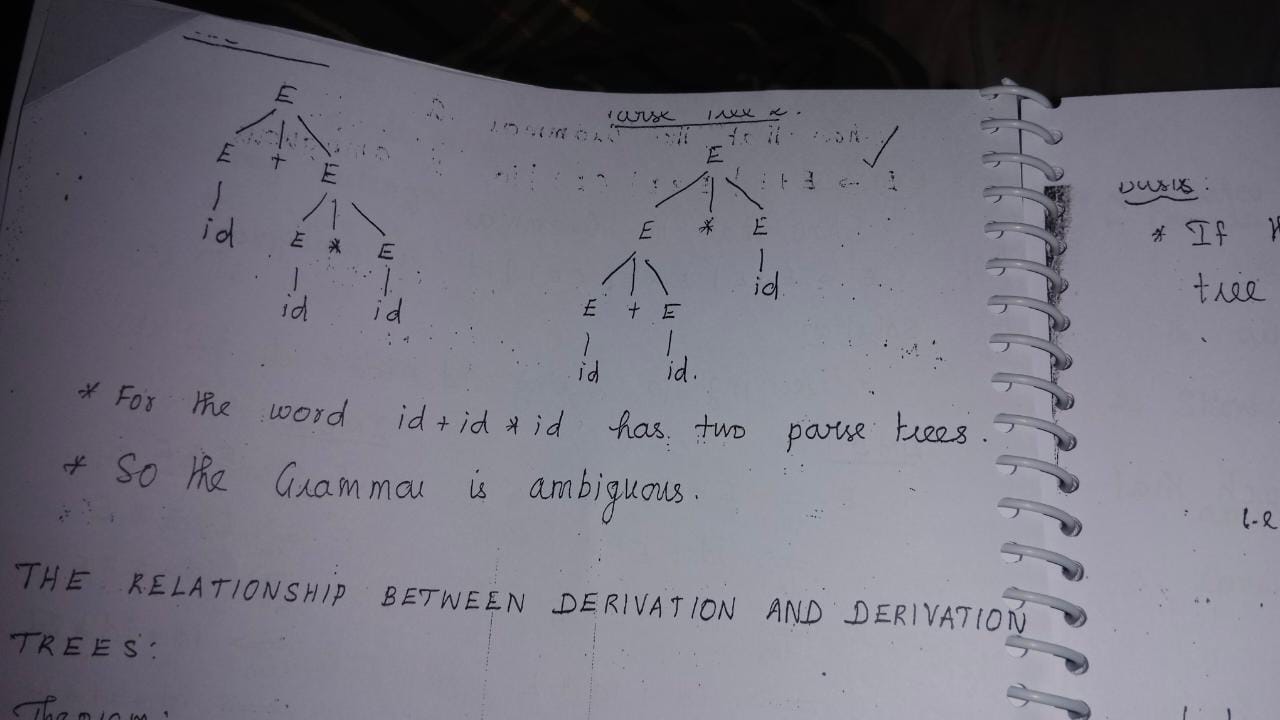 Parse Tree 2.
E
E + E
id E * E
id id
E
E * E
E + E id
id id.
* For the word id + id * id has two parse trees.
* So the Grammar is ambiguous.
THE RELATIONSHIP BETWEEN DERIVATION AND DERIVATION
TREES:
Theorem:
* If
tree